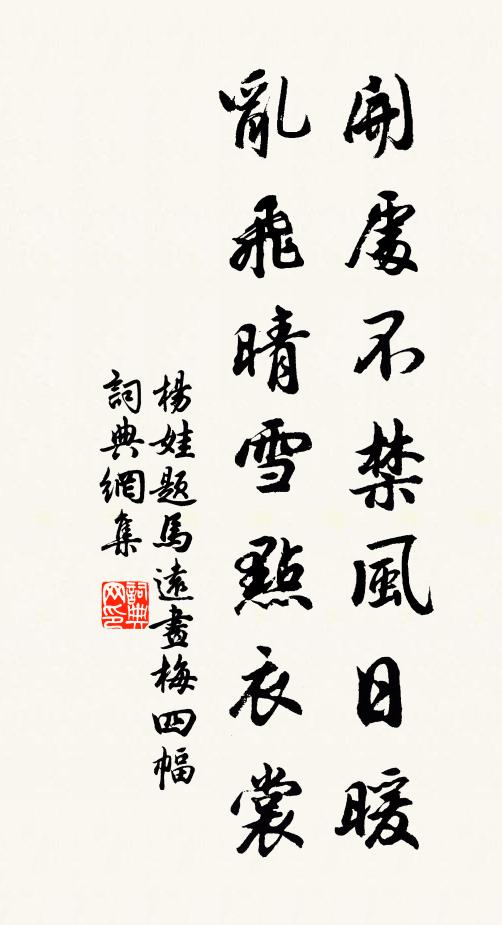 開處不禁風日暖
亂飛晴雪點衣裳
楊娃題馬遠畫梅四幅
詞典網集
詞典网印